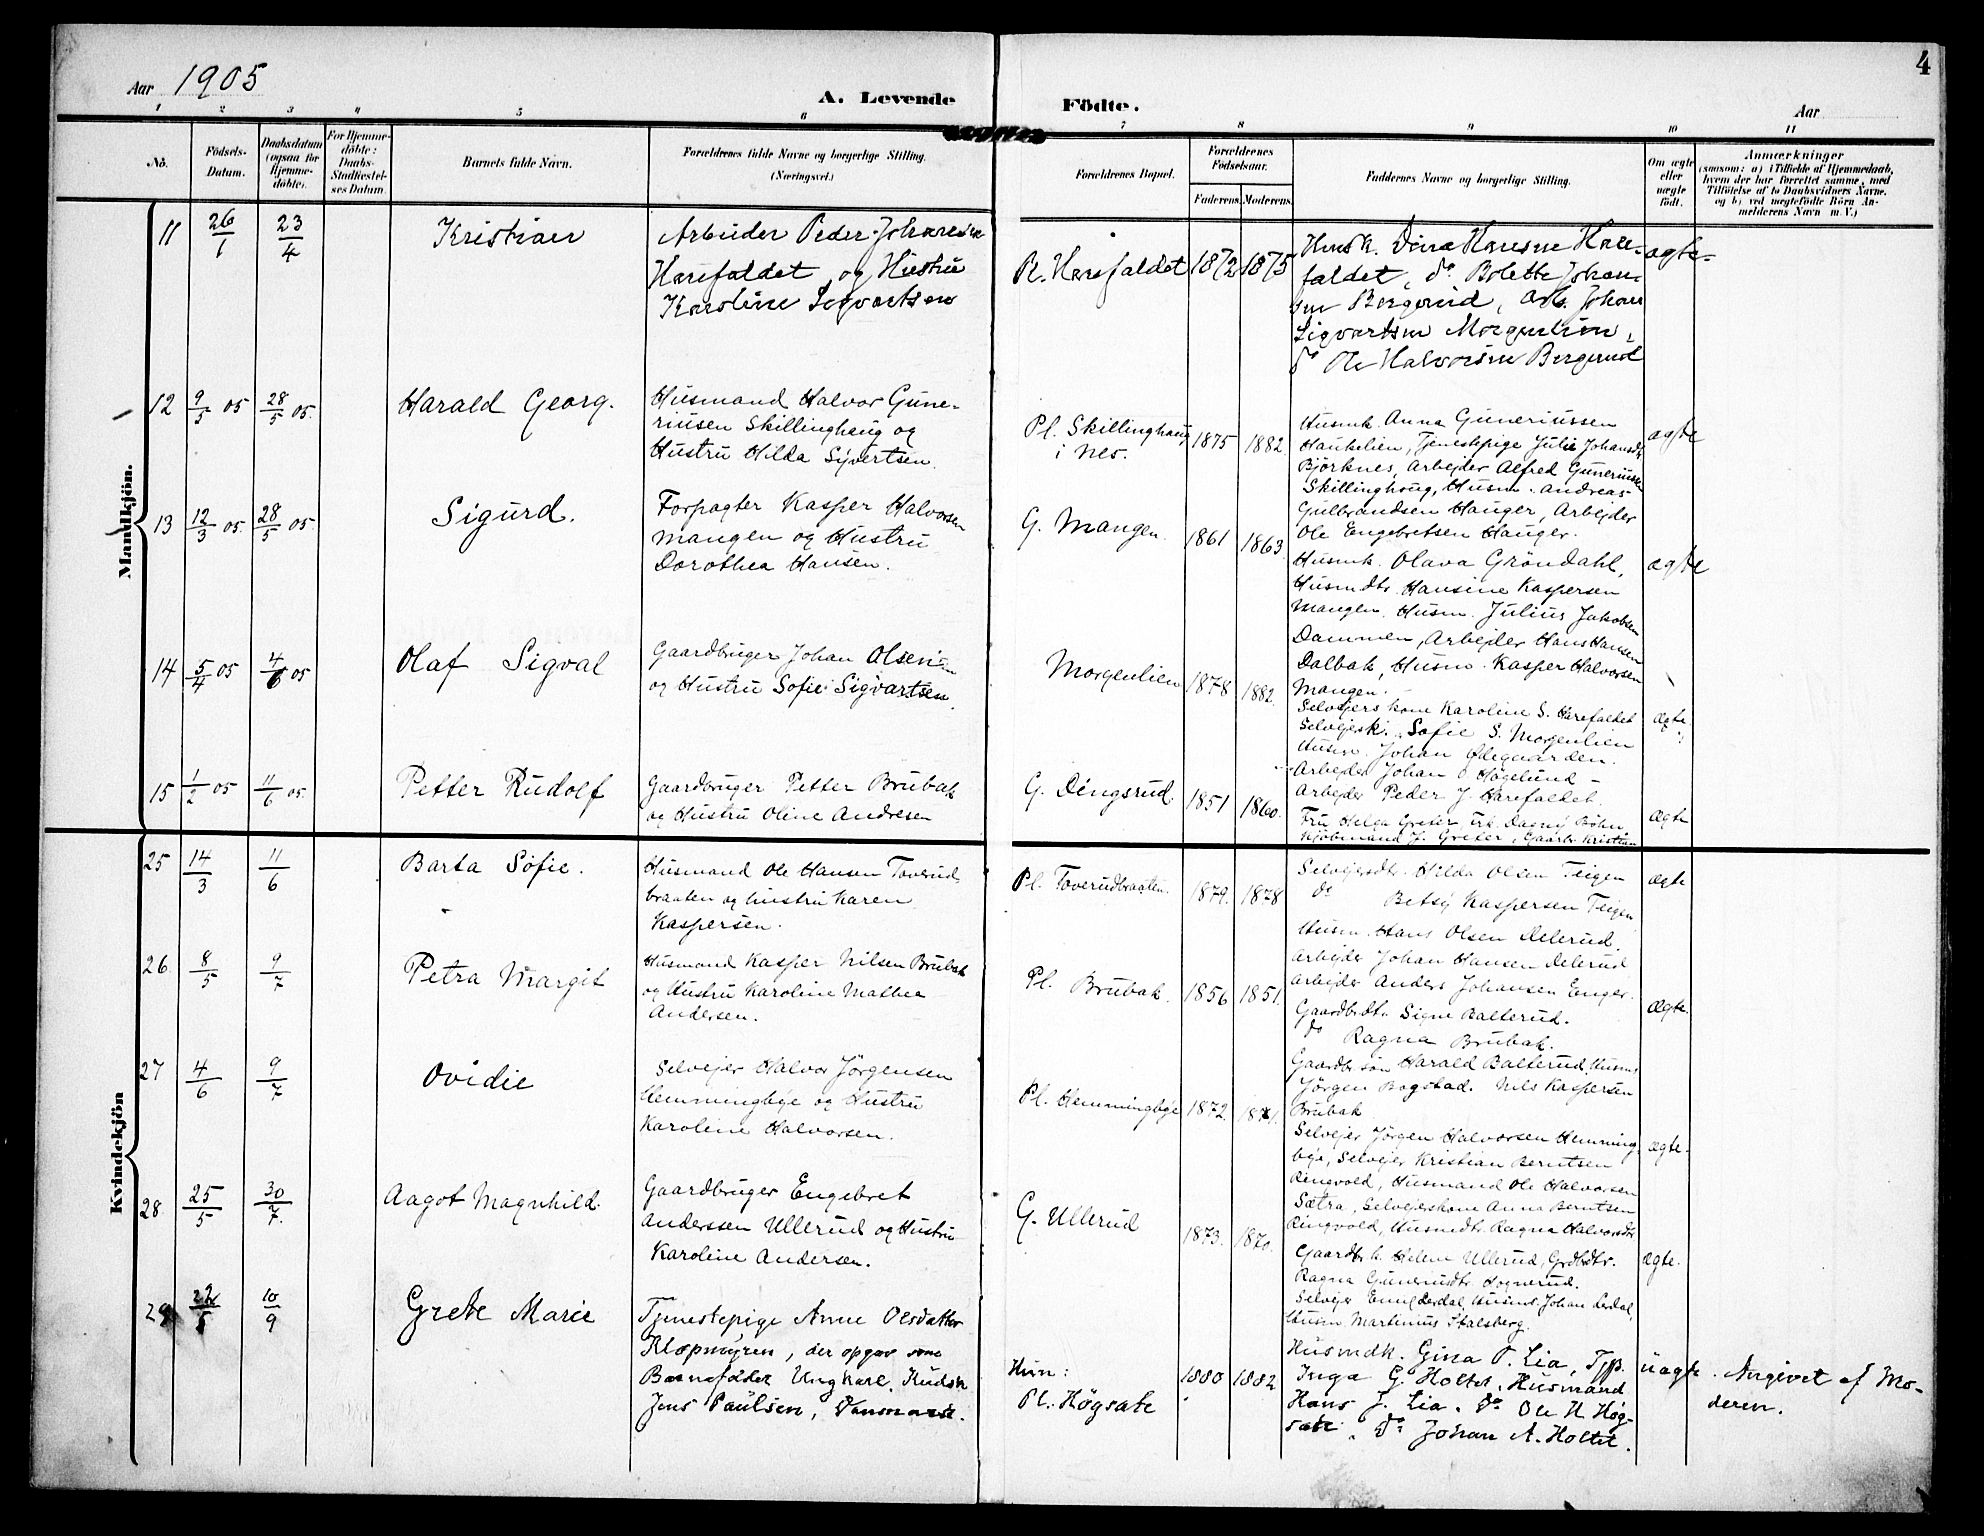 Aar 1905
A. Levende
Födte.
Aar
4
1 2 3 4 5 6 7 8 9 10 11
No.
Födsels-
Datum.
Daabsdatum
(ogsaa for
Hjemme-
döbte).
For Hjemme-
döbte:
Daabs-
Stadfæstel-
ses Datum.
Barnets fulde Navn.
Forældrenes fulde Navne og borgerlige Stilling.
(Næringsvei.)
Forældrenes Bopæl.
Forældrenes
Födselsaar.
Faderens. Moderens.
Faddernes Navne og borgerlige Stilling.
Om ægte
eller
uægte
födt.
Anmærkninger
(saasom: a) i Tilfælde af Hjemmedaab,
hvem der har forrettet samme, med
Tilföielse af to Daabsvidners Navne.
og b) ved uægtefödte Börn An-
melderens Navn m. V.)
Mandkjön.
11 26/1 23/4 Kristian
Arbeider Peder Johansen
Harefaldet, og Hustru
Karoline Sigvartsen
Pl. Harefaldet 1872 1875
Husmk. Dina Hansen Hare-
faldet, do Bolette Johan-
sen Bergerud, Arb. Johan
Sigvartsen Morgenlien,
do Ole Halvorsen Bergerud
ægte
12 9/3 05 28/5 05. Harald Georg.
Husmand Halvor Gune-
riusen Skillinghaug og
Hustru Hilda Syvertsen.
Pl. Skillinghaug
i Nes.
1875 1882.
Husmk. Anna Guneriussen
Haukelien, Tjenestepige Julie Johansdtr
Björknes, Arbejder Alfred Guneriussen
Skillinghaug, Husm. Andreas
Gulbrandsen Hauger, Arbejder
Ole Engebretsen Hauger.
ægte
13 12/3 05. 28/5 05 Sigurd.
Forpagter Kasper Halvorsen
Mangen og Hustru
Dorothea Hansen.
G. Mangen. 1861 1863
Husmk. Olava Gröndahl,
Husmdtr. Hansine Kaspersen
Mangen. Husm. Julius Jakobsen
Dammen, Arbejder Hans Hansen
Dalbak, Husm. Kasper Halvorsen
Mangen.
ægte
14 5/4 05 4/6 05 Olaf Sigval
Gaardbruger Johan Olsen
og Hustru Sofie Sigvartsen.
Morgenlien 1878 1882.
Selvejers kone Karoline S. Harefaldet
Selvejersk. Sofie S. Morgenlien
Husm. Johan Ödegaarden.
Arbejder Johan O Högelund -
Arbejder Peder J. Harefaldet.
Ægte
15 1/2 05 11/6 05. Petter Rudolf
Gaardbruger Petter Brubak
og Hustru Oline Andresen
G. Dingsrud. 1851 1860.
Fru Helga Greter, Frk. Dagny Böhn
Kjöbmand J. Greter, Gaardbr. Kristian
Ægte
Kvindekjön
25 14/3 11/6 Barta Sofie.
Husmand Ole Hansen Toverud-
braaten og hustru Karen
Kaspersen.
Pl. Toverudbraaten. 1879. 1878
Selvejersdtr. Hilda Olsen Teigen
do Betsy Kaspersen Teigen
Husm. Hans Olsen Delerud.
Arbejder Johan Hansen Delerud
Arbejder Anders Johansen Enger.
Ægte
26. 8/5 9/7 Petra Margit
Husmand Kasper Nilsen Brubak
og Hustru Karoline Mathea
Andersen.
Pl. Brubak. 1856 1851.
Gaardbrdtr. Signe Balterud.
do Ragna Brubak.
Gaardbr. sön Harald Balterud, Husm.
Jörgen Bogstad. Nils Kaspersen
Brubak
Ægte.
27 4/6 9/7 Ovidie
Selvejer Halvor Jörgensen
Hemmingbye og Hustru
Karoline Halvorsen.
Pl. Hemmingbye 1872. 1871.
Selvejer Jörgen Halvorsen Hemming-
bye, Selvejer Kristian Berntsen
Ringvold, Husmand Ole Halvorsen
Sætra, Selvejerskone Anna Berntsen
Ringvold, Husmdtr. Ragna Halvorsdtr.
Ægte.
28. 25/5 30/7. Aagot Magnhild.
Gaardbruger Engebret
Anderssen Ullerud og Hustru
Karoline Andersen.
G. Ullerud 1873. 1870.
Gaardbr. k. Helene Ullerud, Grdbdtr.
Ragna Guneriusdtr.
Selvejer Johan Lerdal,
Husm Martinius Stalsberg.
Ægte.
29 22/5 10/9 Grete Marie
Tjenestepige Anne Olsdatter
Klopmyren, der opgav som
Barnefader Ungkarl, Kudsk
Jens Paulsen, Danmark.
Hun:
Pl. Högsæte
1880 1882
Husmdk. Gina P. Lia, Tjp.
Inga G. Holtet, Husmand
Hans J. Lia. do Ole H Høg-
sæte. do Johan A. Holtet.
uægte.
Angivet af Mo-
deren.